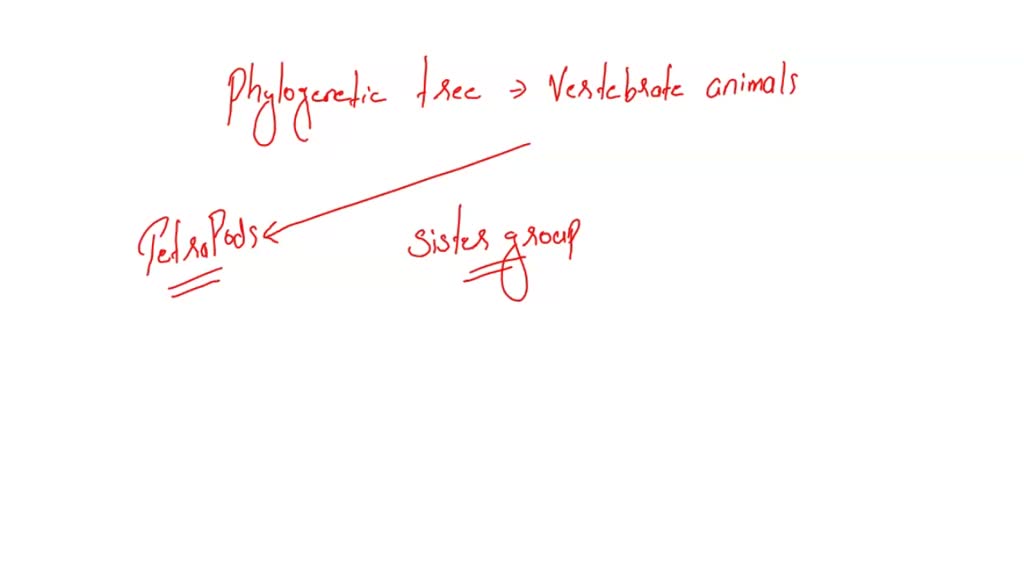 Phylogenetic tree → Vertebrate animals
TetraPods
sister group